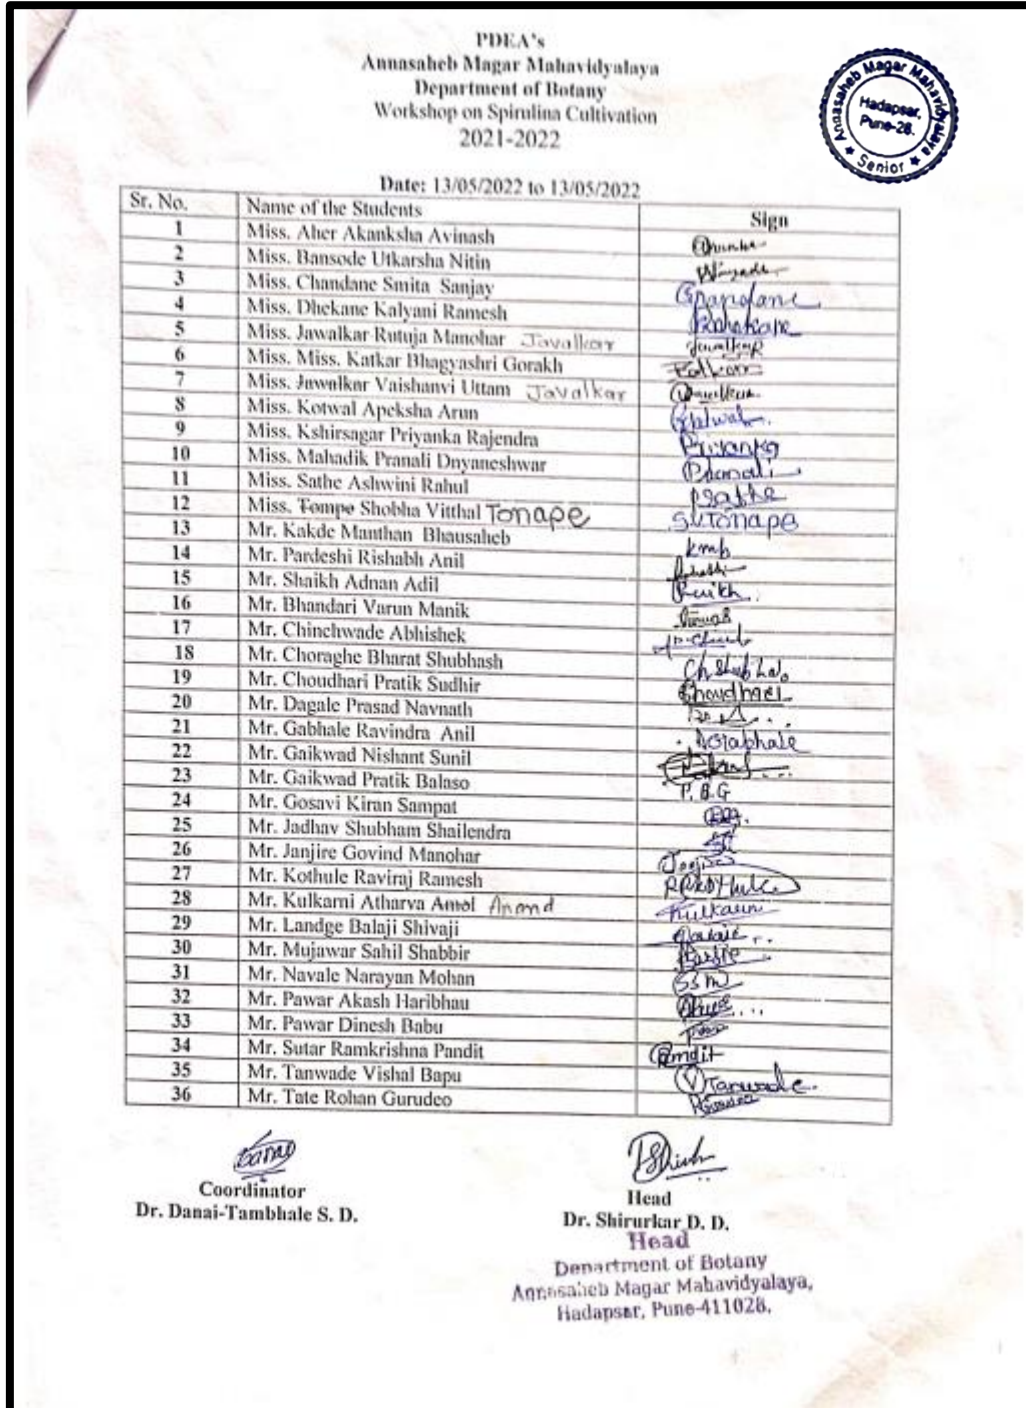 PDEA's
Annasaheb Magar Mahavidyalaya
Department of Botany
Workshop on Spirulina Cultivation
2021-2022
Annasaheb Magar Mahavidyalaya
Hadapsar,
Pune-28.
★ Senior ★
Date: 13/05/2022 to 13/05/2022
Sr. No. Name of the Students Sign
1 Miss. Aher Akanksha Avinash
2 Miss. Bansode Utkarsha Nitin
3 Miss. Chandane Smita Sanjay
4 Miss. Dhekane Kalyani Ramesh
5 Miss. Jawalkar Rutuja Manohar Javalkar
6 Miss. Miss. Katkar Bhagyashri Gorakh
7 Miss. Jawalkar Vaishanvi Uttam Javalkar
8 Miss. Kotwal Apeksha Arun
9 Miss. Kshirsagar Priyanka Rajendra Priyanka
10 Miss. Mahadik Pranali Dnyaneshwar Pranali
11 Miss. Sathe Ashwini Rahul
12 Miss. Tompe Shobha Vitthal Tonape S.V.Tonape
13 Mr. Kakde Manthan Bhausaheb kmb
14 Mr. Pardeshi Rishabh Anil
15 Mr. Shaikh Adnan Adil
16 Mr. Bhandari Varun Manik
17 Mr. Chinchwade Abhishek
18 Mr. Choraghe Bharat Shubhash
19 Mr. Choudhari Pratik Sudhir
20 Mr. Dagale Prasad Navnath
21 Mr. Gabhale Ravindra Anil
22 Mr. Gaikwad Nishant Sunil
23 Mr. Gaikwad Pratik Balaso P.B.G
24 Mr. Gosavi Kiran Sampat
25 Mr. Jadhav Shubham Shailendra
26 Mr. Janjire Govind Manohar
27 Mr. Kothule Raviraj Ramesh
28 Mr. Kulkarni Atharva Amol Anand Kulkarni
29 Mr. Landge Balaji Shivaji
30 Mr. Mujawar Sahil Shabbir
31 Mr. Navale Narayan Mohan SSM
32 Mr. Pawar Akash Haribhau
33 Mr. Pawar Dinesh Babu
34 Mr. Sutar Ramkrishna Pandit
35 Mr. Tanwade Vishal Bapu VTanwade.
36 Mr. Tate Rohan Gurudeo
Coordinator
Dr. Danai-Tambhale S. D.
Head
Dr. Shirurkar D. D.
Head
Department of Botany
Annasaheb Magar Mahavidyalaya,
Hadapsar, Pune-411028.